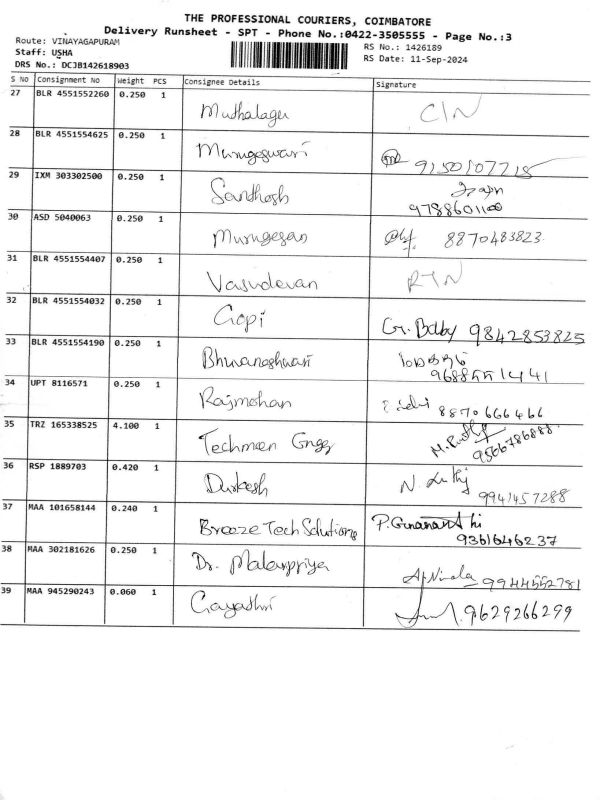 THE PROFESSIONAL COURIERS, COIMBATORE
Delivery Runsheet - SPT - Phone No.:0422-3505555 - Page No.:3
Route: VINAYAGAPURAM
RS No.: 1426189
Staff: USHA
RS Date: 11-Sep-2024
DRS No.: DCJB142618903
S No Consignment No Weight PCS Consignee Details Signature
27 BLR 4551552260 0.250 1 Muthalagu CIN
28 BLR 4551554625 0.250 1 Murugeswari 9150107715
29 IXM 303302500 0.250 1 Santhosh
9788601100
30 ASD 5040063 0.250 1 Murugesan 8870483823
31 BLR 4551554407 0.250 1 Vasudevan RTN
32 BLR 4551554032 0.250 1 Gopi G. Baby 9842853825
33 BLR 4551554190 0.250 1 Bhuvaneshwari
9688551441
34 UPT 8116571 0.250 1 Rajmohan 8870666466
35 TRZ 165338525 4.100 1 Techmen Engg
9566786888
36 RSP 1889703 0.420 1 Durkesh N 9941457288
37 MAA 101658144 0.240 1 Breeze Tech Solutions P.Gunananthi
9361646237
38 MAA 302181626 0.250 1 Dr. Malarpriya A.Nirmala 9944552781
39 MAA 945290243 0.060 1 Gayathri 9629266299